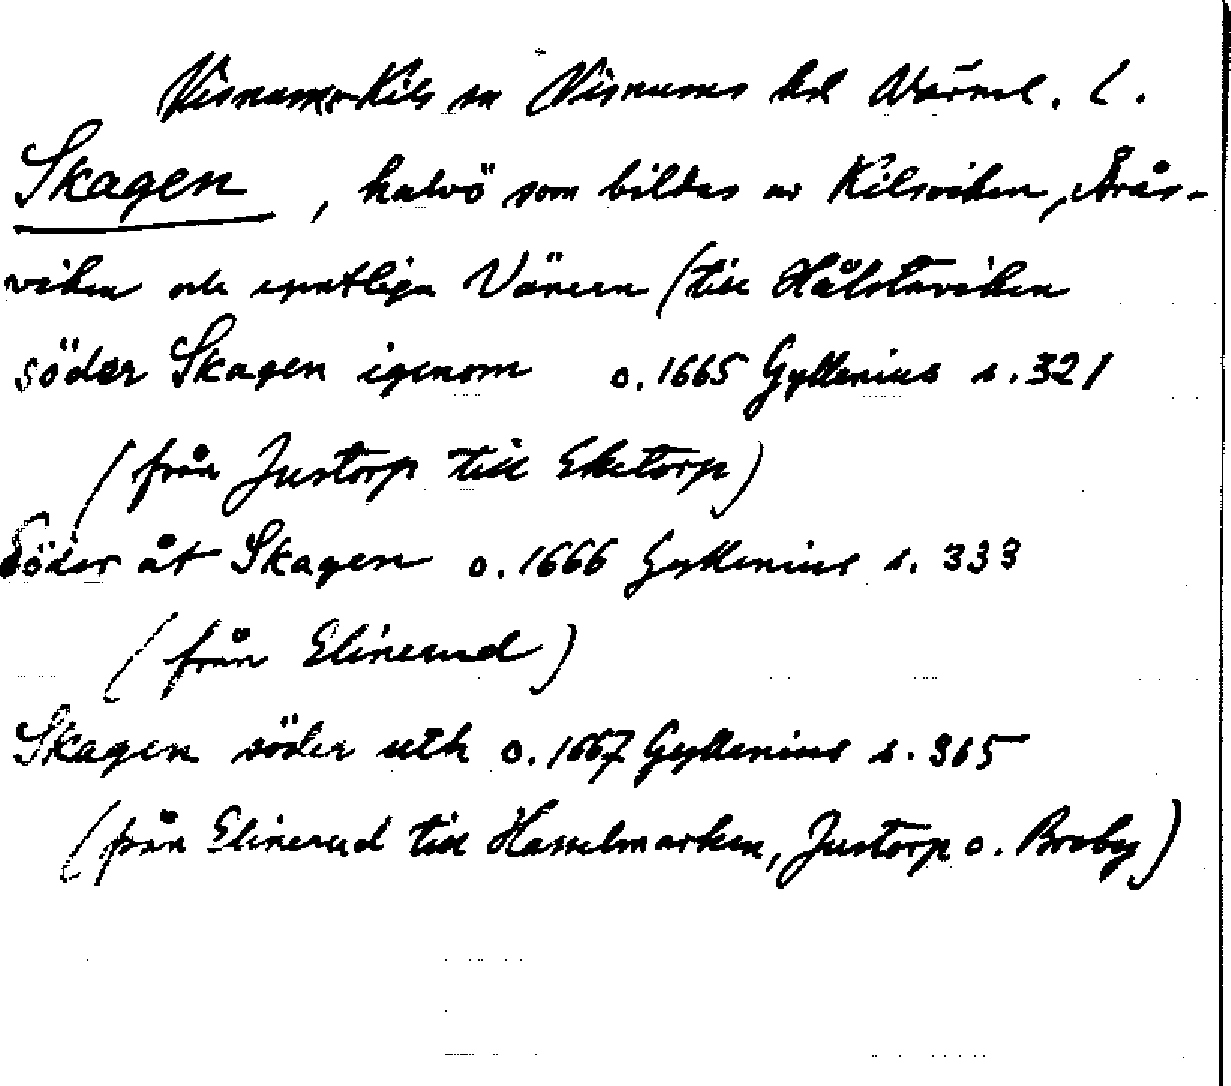 Visnums-Kils sn Visnums hd Värml. l.
Skagen, halvö som bildas av Kilsviken, Årås-
viken och egentliga Vänern (till Hålstaviken
söder Skagen igenom o. 1665 Gyllenius s. 321
(från Justorp till Eketorp)
Söder åt Skagen o. 1666 Gyllenius s. 333
(från Elinerud)
Skagen söder uth o. 1667 Gyllenius s. 365
(från Elinerud till Hasselmarken, Justorp o. Broby)